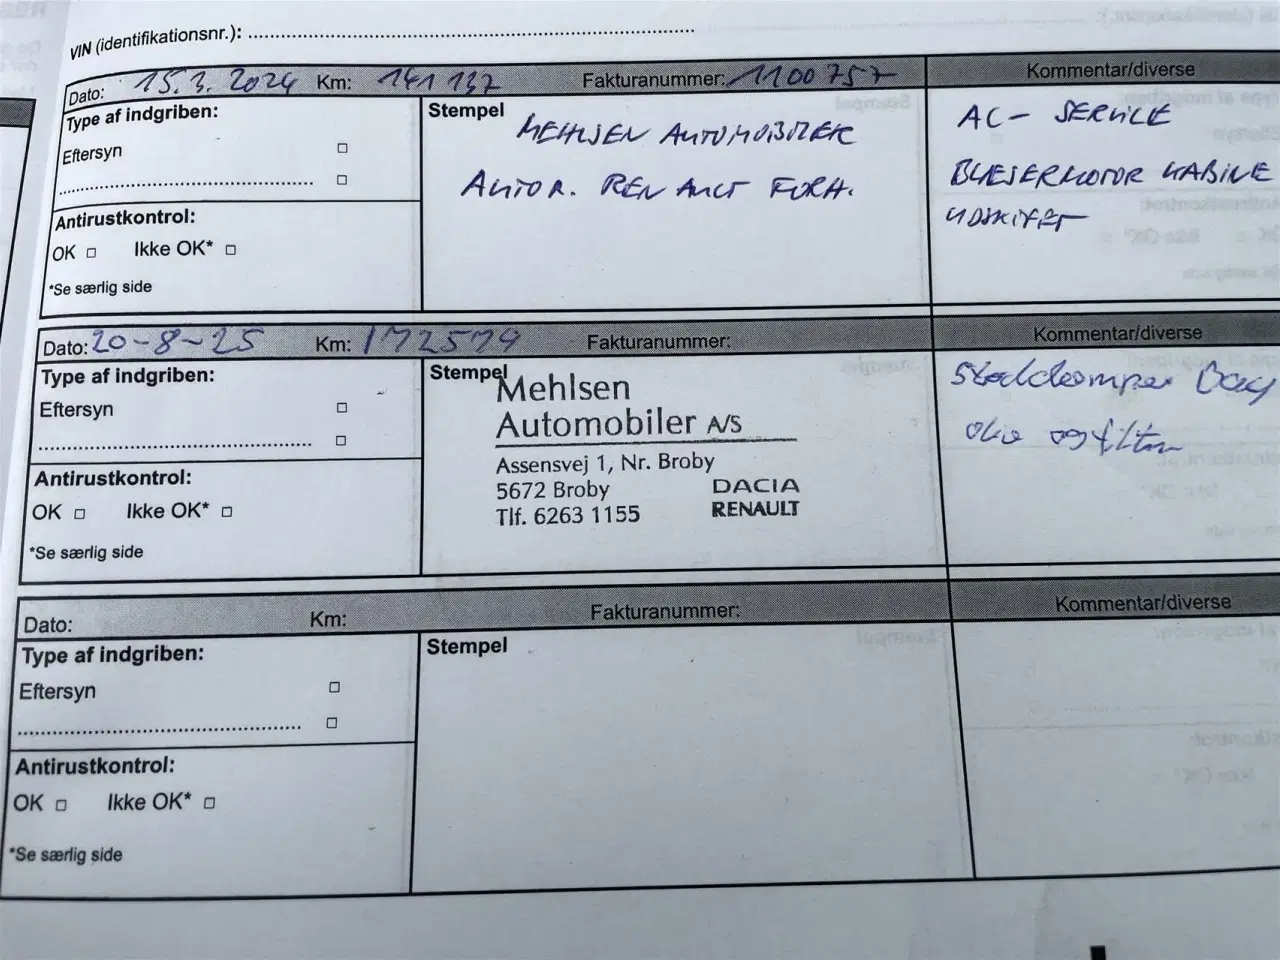 VIN (identifikationsnr.): ........................................
Dato: 15.3.2024 Km: 141 137 Fakturanummer: 1100757 Kommentar/diverse
Type af indgriben:
Eftersyn
Antirustkontrol:
OK Ikke OK*
*Se særlig side
Stempel
MEHLSEN AUTOMOBILER
AUTOR. RENAULT FORH.
AC- SERVICE
BLÆSERMOTOR KABINE
UDSKIFTET
Dato: 20-8-25 Km: 172579 Fakturanummer: Kommentar/diverse
Type af indgriben:
Eftersyn
Antirustkontrol:
OK Ikke OK*
*Se særlig side
Stempel
Mehlsen
Automobiler A/S
Assensvej 1, Nr. Broby
5672 Broby DACIA
Tlf. 6263 1155 RENAULT
Støddæmper Bag
olie og filter
Dato: Km: Fakturanummer: Kommentar/diverse
Type af indgriben:
Eftersyn
Antirustkontrol:
OK Ikke OK*
*Se særlig side
Stempel